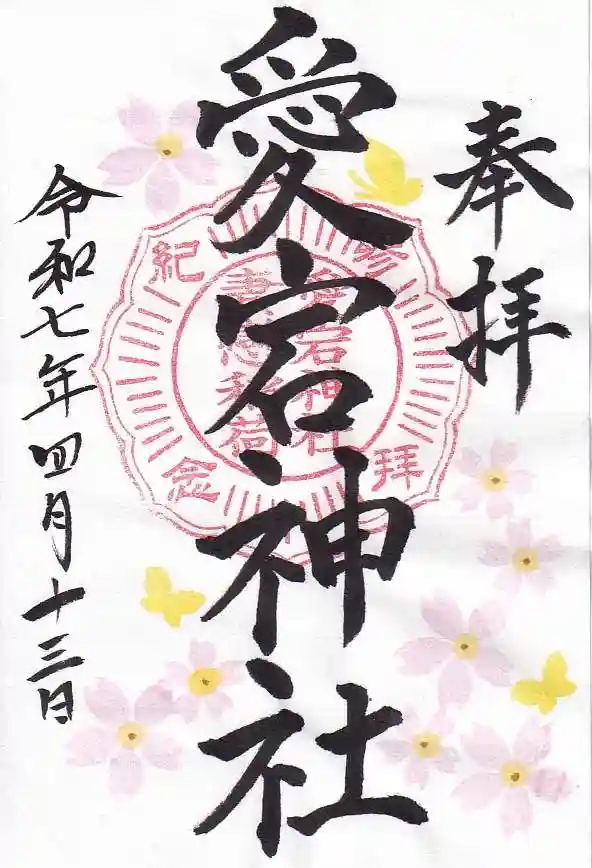 奉拝
愛宕神社
令和七年四月十三日
参拝
紀念
愛宕神社
稲荷